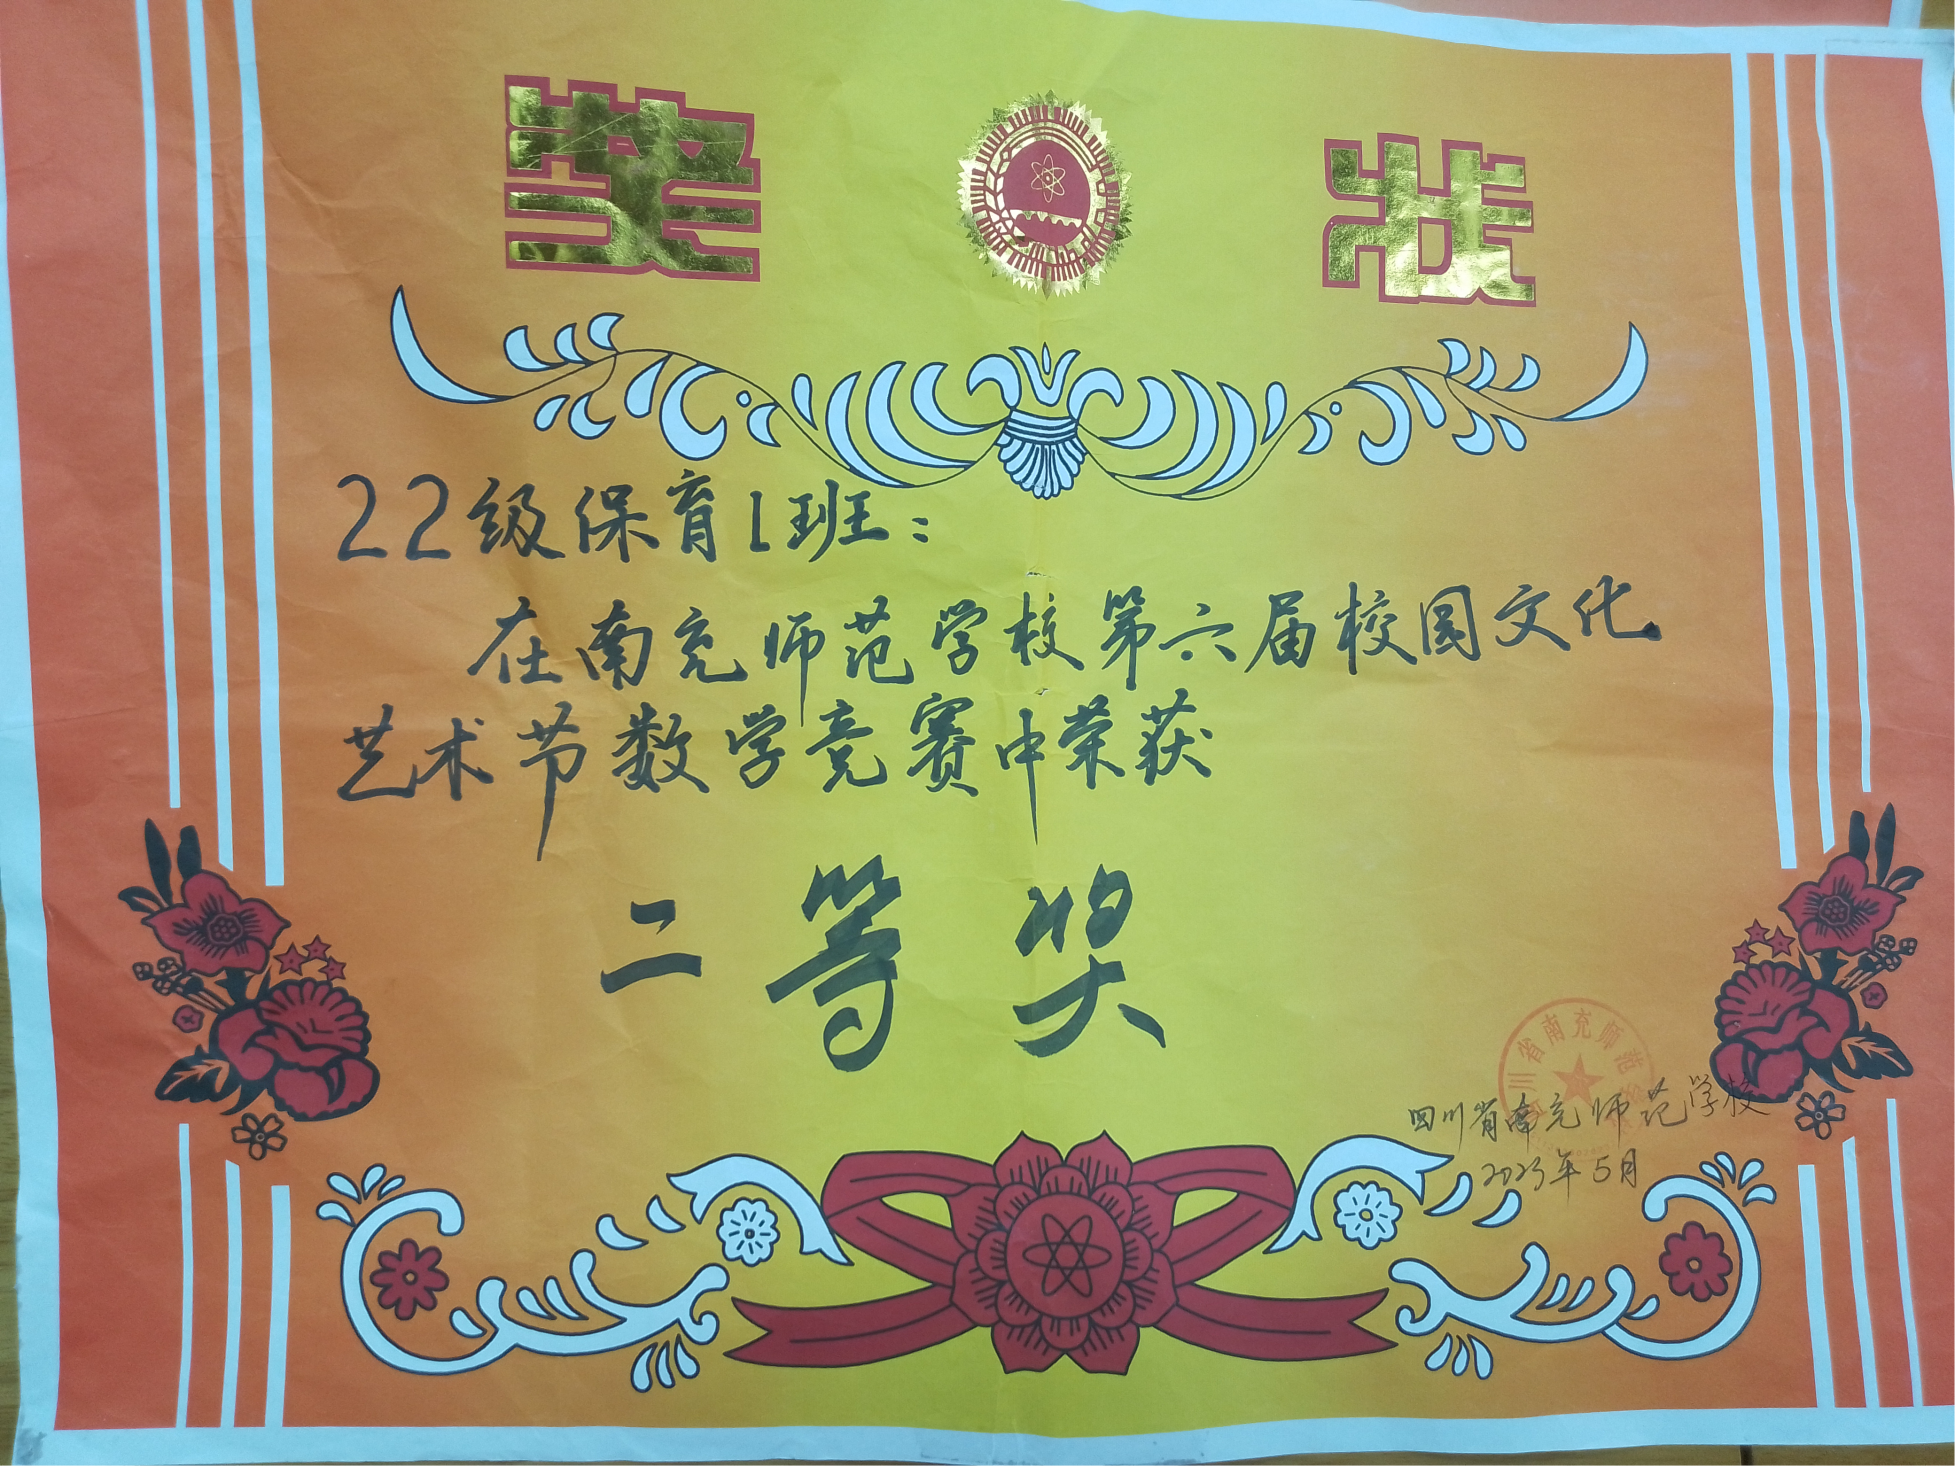 奖状
22级保育1班:
在南充师范学校第六届校园文化
艺术节数学竞赛中荣获
二等奖
四川省南充师范学校
2023年5月